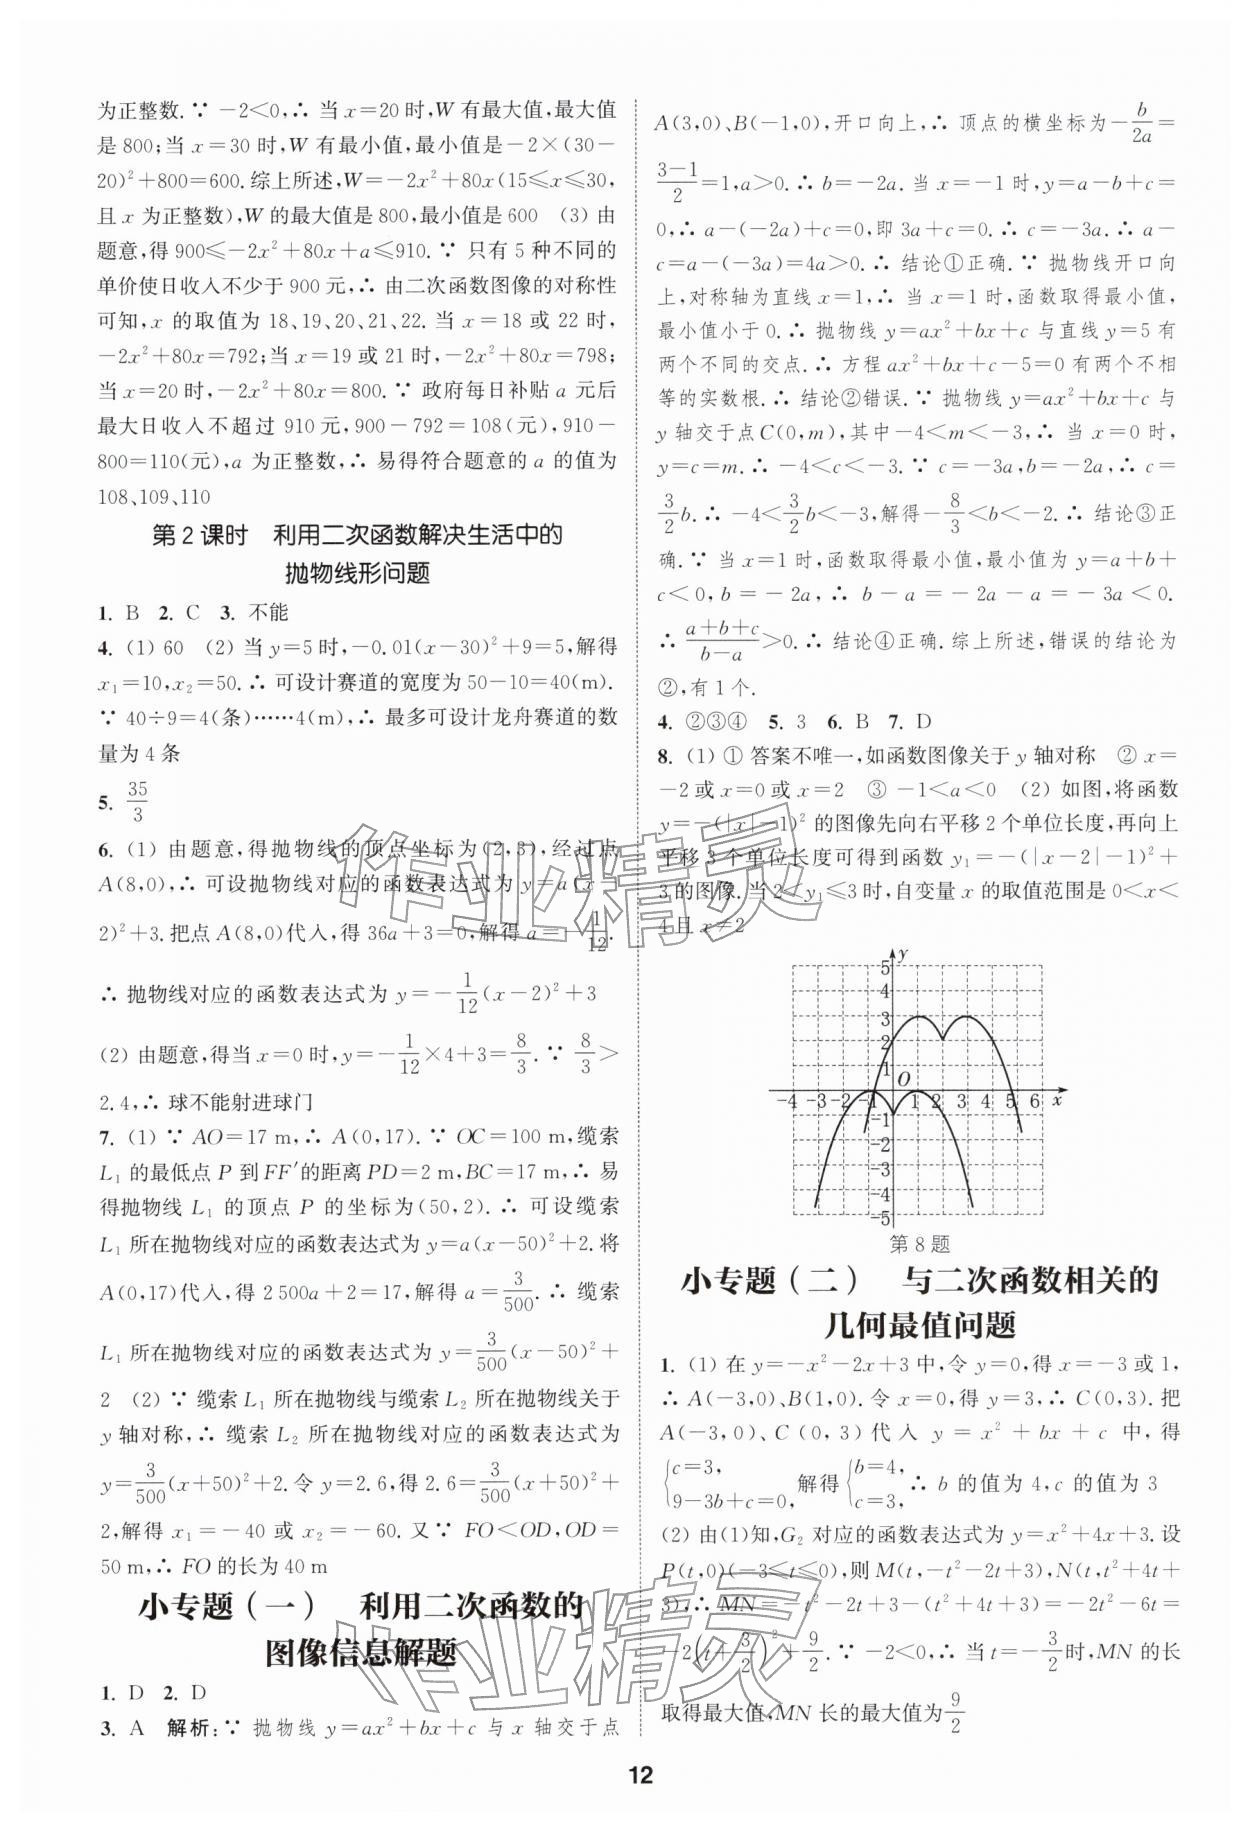 为正整数.∵ －2＜0,∴ 当 x＝20 时,W 有最大值,最大值
是 800;当 x＝30 时,W 有最小值,最小值是－2×(30－
20)²＋800＝600.综上所述,W＝－2x²＋80x(15≤x≤30,
且 x 为正整数),W 的最大值是 800,最小值是 600 (3) 由
题意,得 900≤－2x²＋80x＋a≤910.∵ 只有 5 种不同的
单价使日收入不少于 900 元,∴ 由二次函数图像的对称性
可知,x 的取值为 18、19、20、21、22.当 x＝18 或 22 时,
－2x²＋80x＝792;当 x＝19 或 21 时,－2x²＋80x＝798;
当 x＝20 时,－2x²＋80x＝800.∵ 政府每日补贴 a 元后
最大日收入不超过 910 元,900－792＝108(元),910－
800＝110(元),a 为正整数,∴ 易得符合题意的 a 的值为
108、109、110
第 2 课时 利用二次函数解决生活中的
抛物线形问题
1. B 2. C 3. 不能
4. (1) 60 (2) 当 y＝5 时,－0.01(x－30)²＋9＝5,解得
x₁＝10,x₂＝50.∴ 可设计赛道的宽度为 50－10＝40(m).
∵ 40÷9＝4(条)……4(m),∴ 最多可设计龙舟赛道的数
量为 4 条
5. 35/3
6. (1) 由题意,得抛物线的顶点坐标为(2,3),经过点
A(8,0),∴ 可设抛物线对应的函数表达式为 y＝a(x－
2)²＋3.把点 A(8,0)代入,得 36a＋3＝0,解得 a＝－1/12.
∴ 抛物线对应的函数表达式为 y＝－1/12(x－2)²＋3
(2) 由题意,得当 x＝0 时,y＝－1/12×4＋3＝8/3.∵ 8/3＞
2.4,∴ 球不能射进球门
7. (1) ∵ AO＝17 m,∴ A(0,17).∵ OC＝100 m,缆索
L₁ 的最低点 P 到 FF′的距离 PD＝2 m,BC＝17 m,∴ 易
得抛物线 L₁ 的顶点 P 的坐标为(50,2).∴ 可设缆索
L₁ 所在抛物线对应的函数表达式为 y＝a(x－50)²＋2.将
A(0,17)代入,得 2 500a＋2＝17,解得 a＝3/500.∴ 缆索
L₁ 所在抛物线对应的函数表达式为 y＝3/500(x－50)²＋
2 (2) ∵ 缆索 L₁ 所在抛物线与缆索 L₂ 所在抛物线关于
y 轴对称,∴ 缆索 L₂ 所在抛物线对应的函数表达式为
y＝3/500(x＋50)²＋2.令 y＝2.6,得 2.6＝3/500(x＋50)²＋
2,解得 x₁＝－40 或 x₂＝－60.又∵ FO＜OD,OD＝
50 m,∴ FO 的长为 40 m
小专题(一) 利用二次函数的
图像信息解题
1. D 2. D
3. A 解析:∵ 抛物线 y＝ax²＋bx＋c 与 x 轴交于点
A(3,0)、B(－1,0),开口向上,∴ 顶点的横坐标为－b/2a＝
3－1/2＝1,a＞0.∴ b＝－2a.当 x＝－1 时,y＝a－b＋c＝
0,∴ a－(－2a)＋c＝0,即 3a＋c＝0.∴ c＝－3a.∴ a－
c＝a－(－3a)＝4a＞0.∴ 结论①正确.∵ 抛物线开口向
上,对称轴为直线 x＝1,∴ 当 x＝1 时,函数取得最小值,
最小值小于 0.∴ 抛物线 y＝ax²＋bx＋c 与直线 y＝5 有
两个不同的交点.∴ 方程 ax²＋bx＋c－5＝0 有两个不相
等的实数根.∴ 结论②错误.∵ 抛物线 y＝ax²＋bx＋c 与
y 轴交于点 C(0,m),其中－4＜m＜－3,∴ 当 x＝0 时,
y＝c＝m.∴ －4＜c＜－3.∵ c＝－3a,b＝－2a,∴ c＝
3/2b.∴ －4＜3/2b＜－3,解得－8/3＜b＜－2.∴ 结论③正
确.∵ 当 x＝1 时,函数取得最小值,最小值为 y＝a＋b＋
c＜0,b＝－2a,∴ b－a＝－2a－a＝－3a＜0.
∴ a＋b＋c/b－a＞0.∴ 结论④正确.综上所述,错误的结论为
②,有 1 个.
4. ②③④ 5. 3 6. B 7. D
8. (1) ① 答案不唯一,如函数图像关于 y 轴对称 ② x＝
－2 或 x＝0 或 x＝2 ③ －1＜a＜0 (2) 如图,将函数
y＝－(|x|－1)² 的图像先向右平移 2 个单位长度,再向上
平移 3 个单位长度可得到函数 y₁＝－(|x－2|－1)²＋
3 的图像.当 2＜y₁≤3 时,自变量 x 的取值范围是 0＜x＜
4 且 x≠2
y
5
4
3
2
1
O
-4 -3 -2 -1 1 2 3 4 5 6 x
-1
-2
-3
-4
-5
第 8 题
小专题(二) 与二次函数相关的
几何最值问题
1. (1) 在 y＝－x²－2x＋3 中,令 y＝0,得 x＝－3 或 1,
∴ A(－3,0)、B(1,0).令 x＝0,得 y＝3,∴ C(0,3).把
A(－3,0)、C(0,3)代入 y＝x²＋bx＋c 中,得
{c＝3, 9－3b＋c＝0, 解得{b＝4, c＝3, ∴ b 的值为 4,c 的值为 3
(2) 由(1)知,G₂ 对应的函数表达式为 y＝x²＋4x＋3.设
P(t,0)(－3≤t≤0),则 M(t,－t²－2t＋3),N(t,t²＋4t＋
3),∴ MN＝－t²－2t＋3－(t²＋4t＋3)＝－2t²－6t＝
－2(t＋3/2)²＋9/2.∵ －2＜0,∴ 当 t＝－3/2时,MN 的长
取得最大值,MN 长的最大值为9/2
12
作业精灵
作业精灵